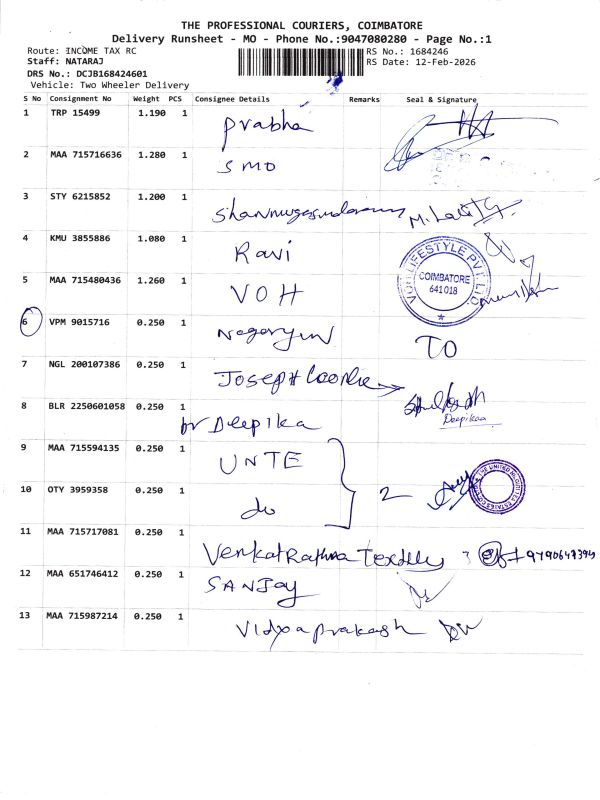 THE PROFESSIONAL COURIERS, COIMBATORE
Delivery Runsheet - MO - Phone No.:9047080280 - Page No.:1
Route: INCOME TAX RC
RS No.: 1684246
Staff: NATARAJ
RS Date: 12-Feb-2026
DRS No.: DCJB168424601
Vehicle: Two Wheeler Delivery
S No Consignment No Weight PCS Consignee Details Remarks Seal & Signature
1 TRP 15499 1.190 1 Prabha
2 MAA 715716636 1.280 1 SMO
3 STY 6215852 1.200 1 Shanmugasundaram
4 KMU 3855886 1.080 1 Ravi
LIFESTYLE PVT. LTD
COIMBATORE
641018
5 MAA 715480436 1.260 1 VOH
6 VPM 9015716 0.250 1 TO
7 NGL 200107386 0.250 1 Joseph
8 BLR 2250601058 0.250 1 Dr Deepika
Deepikaa
9 MAA 715594135 0.250 1 UNTE
2
10 OTY 3959358 1 0.250 do
11 MAA 715717081 0.250 1 Venkat Rathna Textiles
12 MAA 651746412 0.250 1 SANJAY
13 MAA 715987214 0.250 1 Vidyaprakash